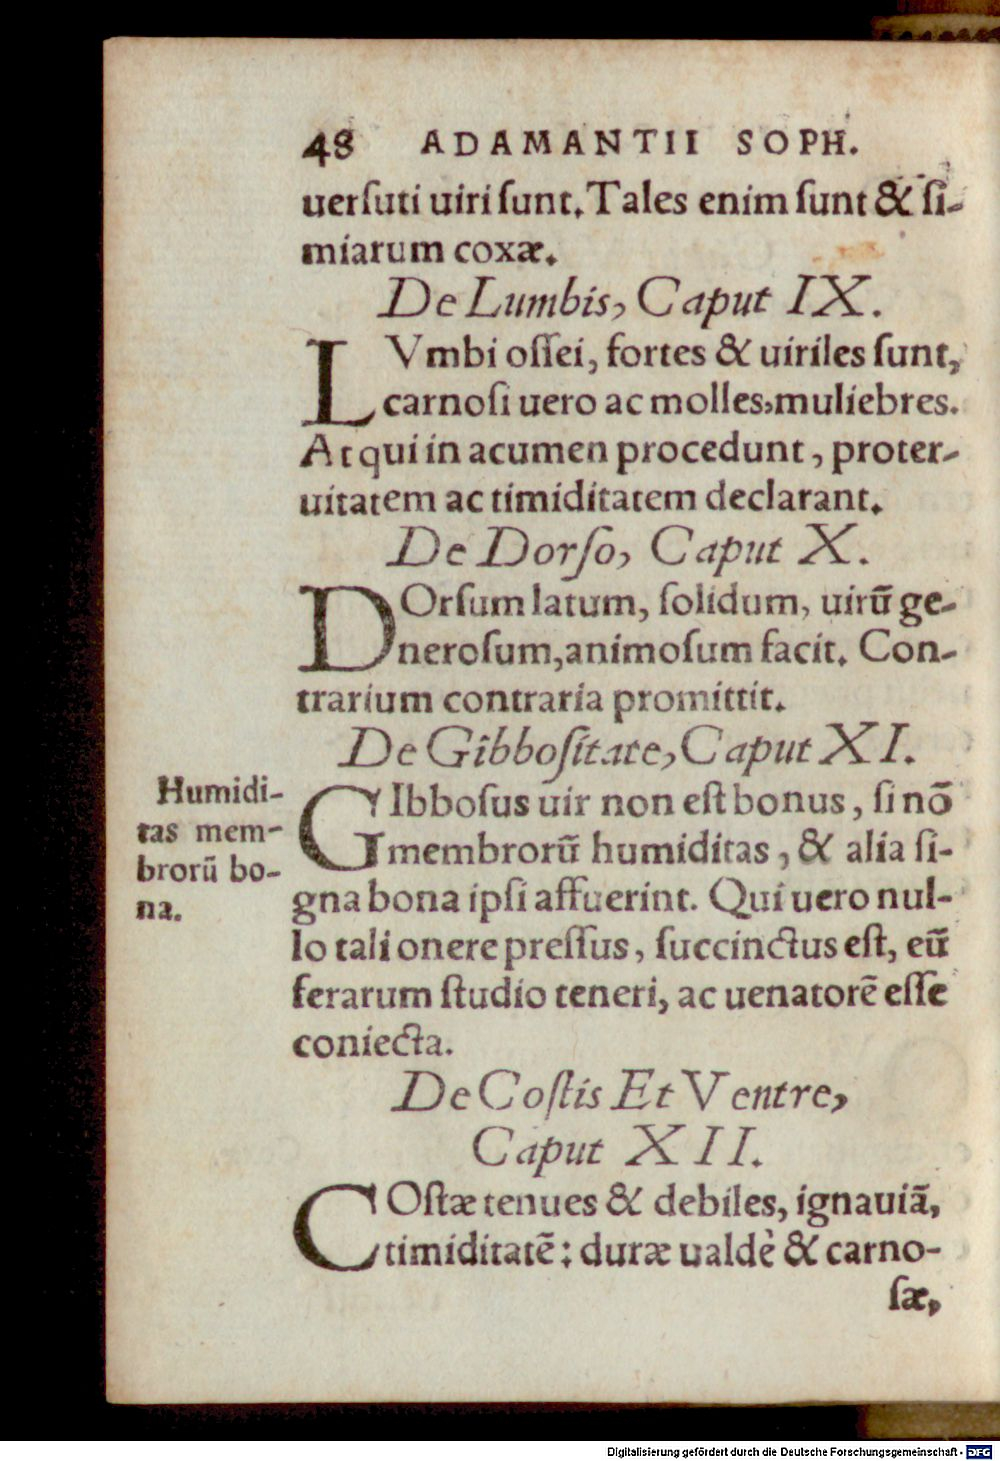 48 ADAMANTII SOPH.
uerſuti uiri ſunt. Tales enim ſunt & ſi-
miarum coxæ.
De Lumbis, Caput IX.
LVmbi oſſei, fortes & uiriles ſunt,
carnoſi uero ac molles, muliebres.
At qui in acumen procedunt, proter-
uitatem ac timiditatem declarant.
De Dorſo, Caput X.
DOrſum latum, ſolidum, uirũ ge-
neroſum, animoſum facit. Con-
trarium contraria promittit.
De Gibboſitate, Caput XI.
Humidi-
tas mem-
brorũ bo-
na.
GIbboſus uir non eſt bonus, ſi nõ
membrorũ humiditas, & alia ſi-
gna bona ipſi affuerint. Qui uero nul-
lo tali onere preſſus, ſuccinctus eſt, eũ
ferarum ſtudio teneri, ac uenatorẽ eſſe
coniecta.
De Coſtis Et Ventre,
Caput XII.
COſtæ tenues & debiles, ignauiã,
timiditatẽ: duræ ualdè & carno-
ſæ,
Digitalisierung gefördert durch die Deutsche Forschungsgemeinschaft - DFG